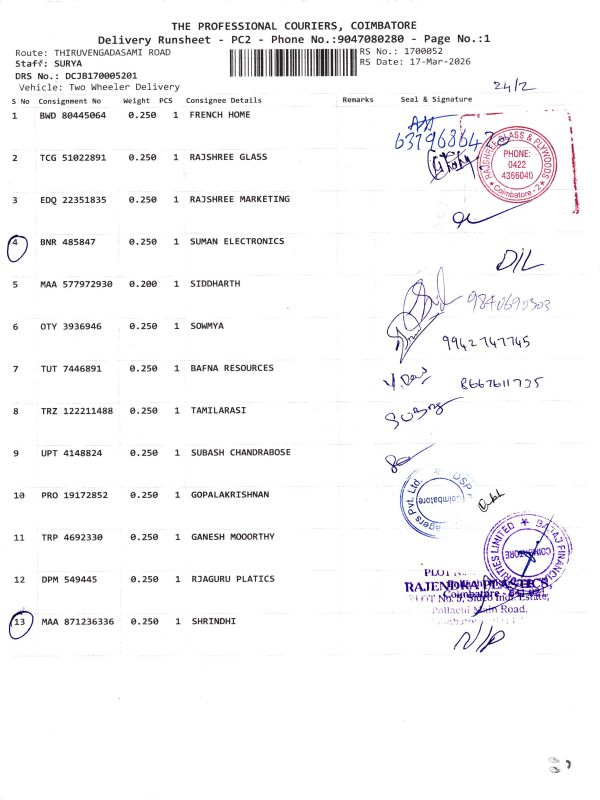 THE PROFESSIONAL COURIERS, COIMBATORE
Delivery Runsheet - PC2 - Phone No.:9047080280 - Page No.:1
Route: THIRUVENGADASAMI ROAD
RS No.: 1700052
Staff: SURYA
RS Date: 17-Mar-2026
DRS No.: DCJB170005201
Vehicle: Two Wheeler Delivery
24/2
S No Consignment No Weight PCS Consignee Details Remarks Seal & Signature
1 BWD 80445064 0.250 1 FRENCH HOME
2 TCG 51022891 0.250 1 RAJSHREE GLASS
RAJSHREE GLASS & PLYWOODS
PHONE:
0422
4366040
Coimbatore - 2
3 EDQ 22351835 0.250 1 RAJSHREE MARKETING
4 BNR 485847 0.250 1 SUMAN ELECTRONICS
D/L
5 MAA 577972930 0.200 1 SIDDHARTH
6 OTY 3936946 0.250 1 SOWMYA
9942747745
7 TUT 7446891 0.250 1 BAFNA RESOURCES
8667611735
8 TRZ 122211488 0.250 1 TAMILARASI
9 UPT 4148824 0.250 1 SUBASH CHANDRABOSE
10 PRO 19172852 0.250 1 GOPALAKRISHNAN
agers Pvt. Ltd.
Coimbatore
11 TRP 4692330 0.250 1 GANESH MOOORTHY
BAJAJ FINANCIAL
RITIES LIMITED
COIMBATORE
12 DPM 549445 0.250 1 RJAGURU PLATICS
RAJENDRA PLASTICS,
PLOT No. 9, Sidco Indl. Estate,
Pollachi Main Road,
13 MAA 871236336 0.250 1 SHRINDHI
N/P